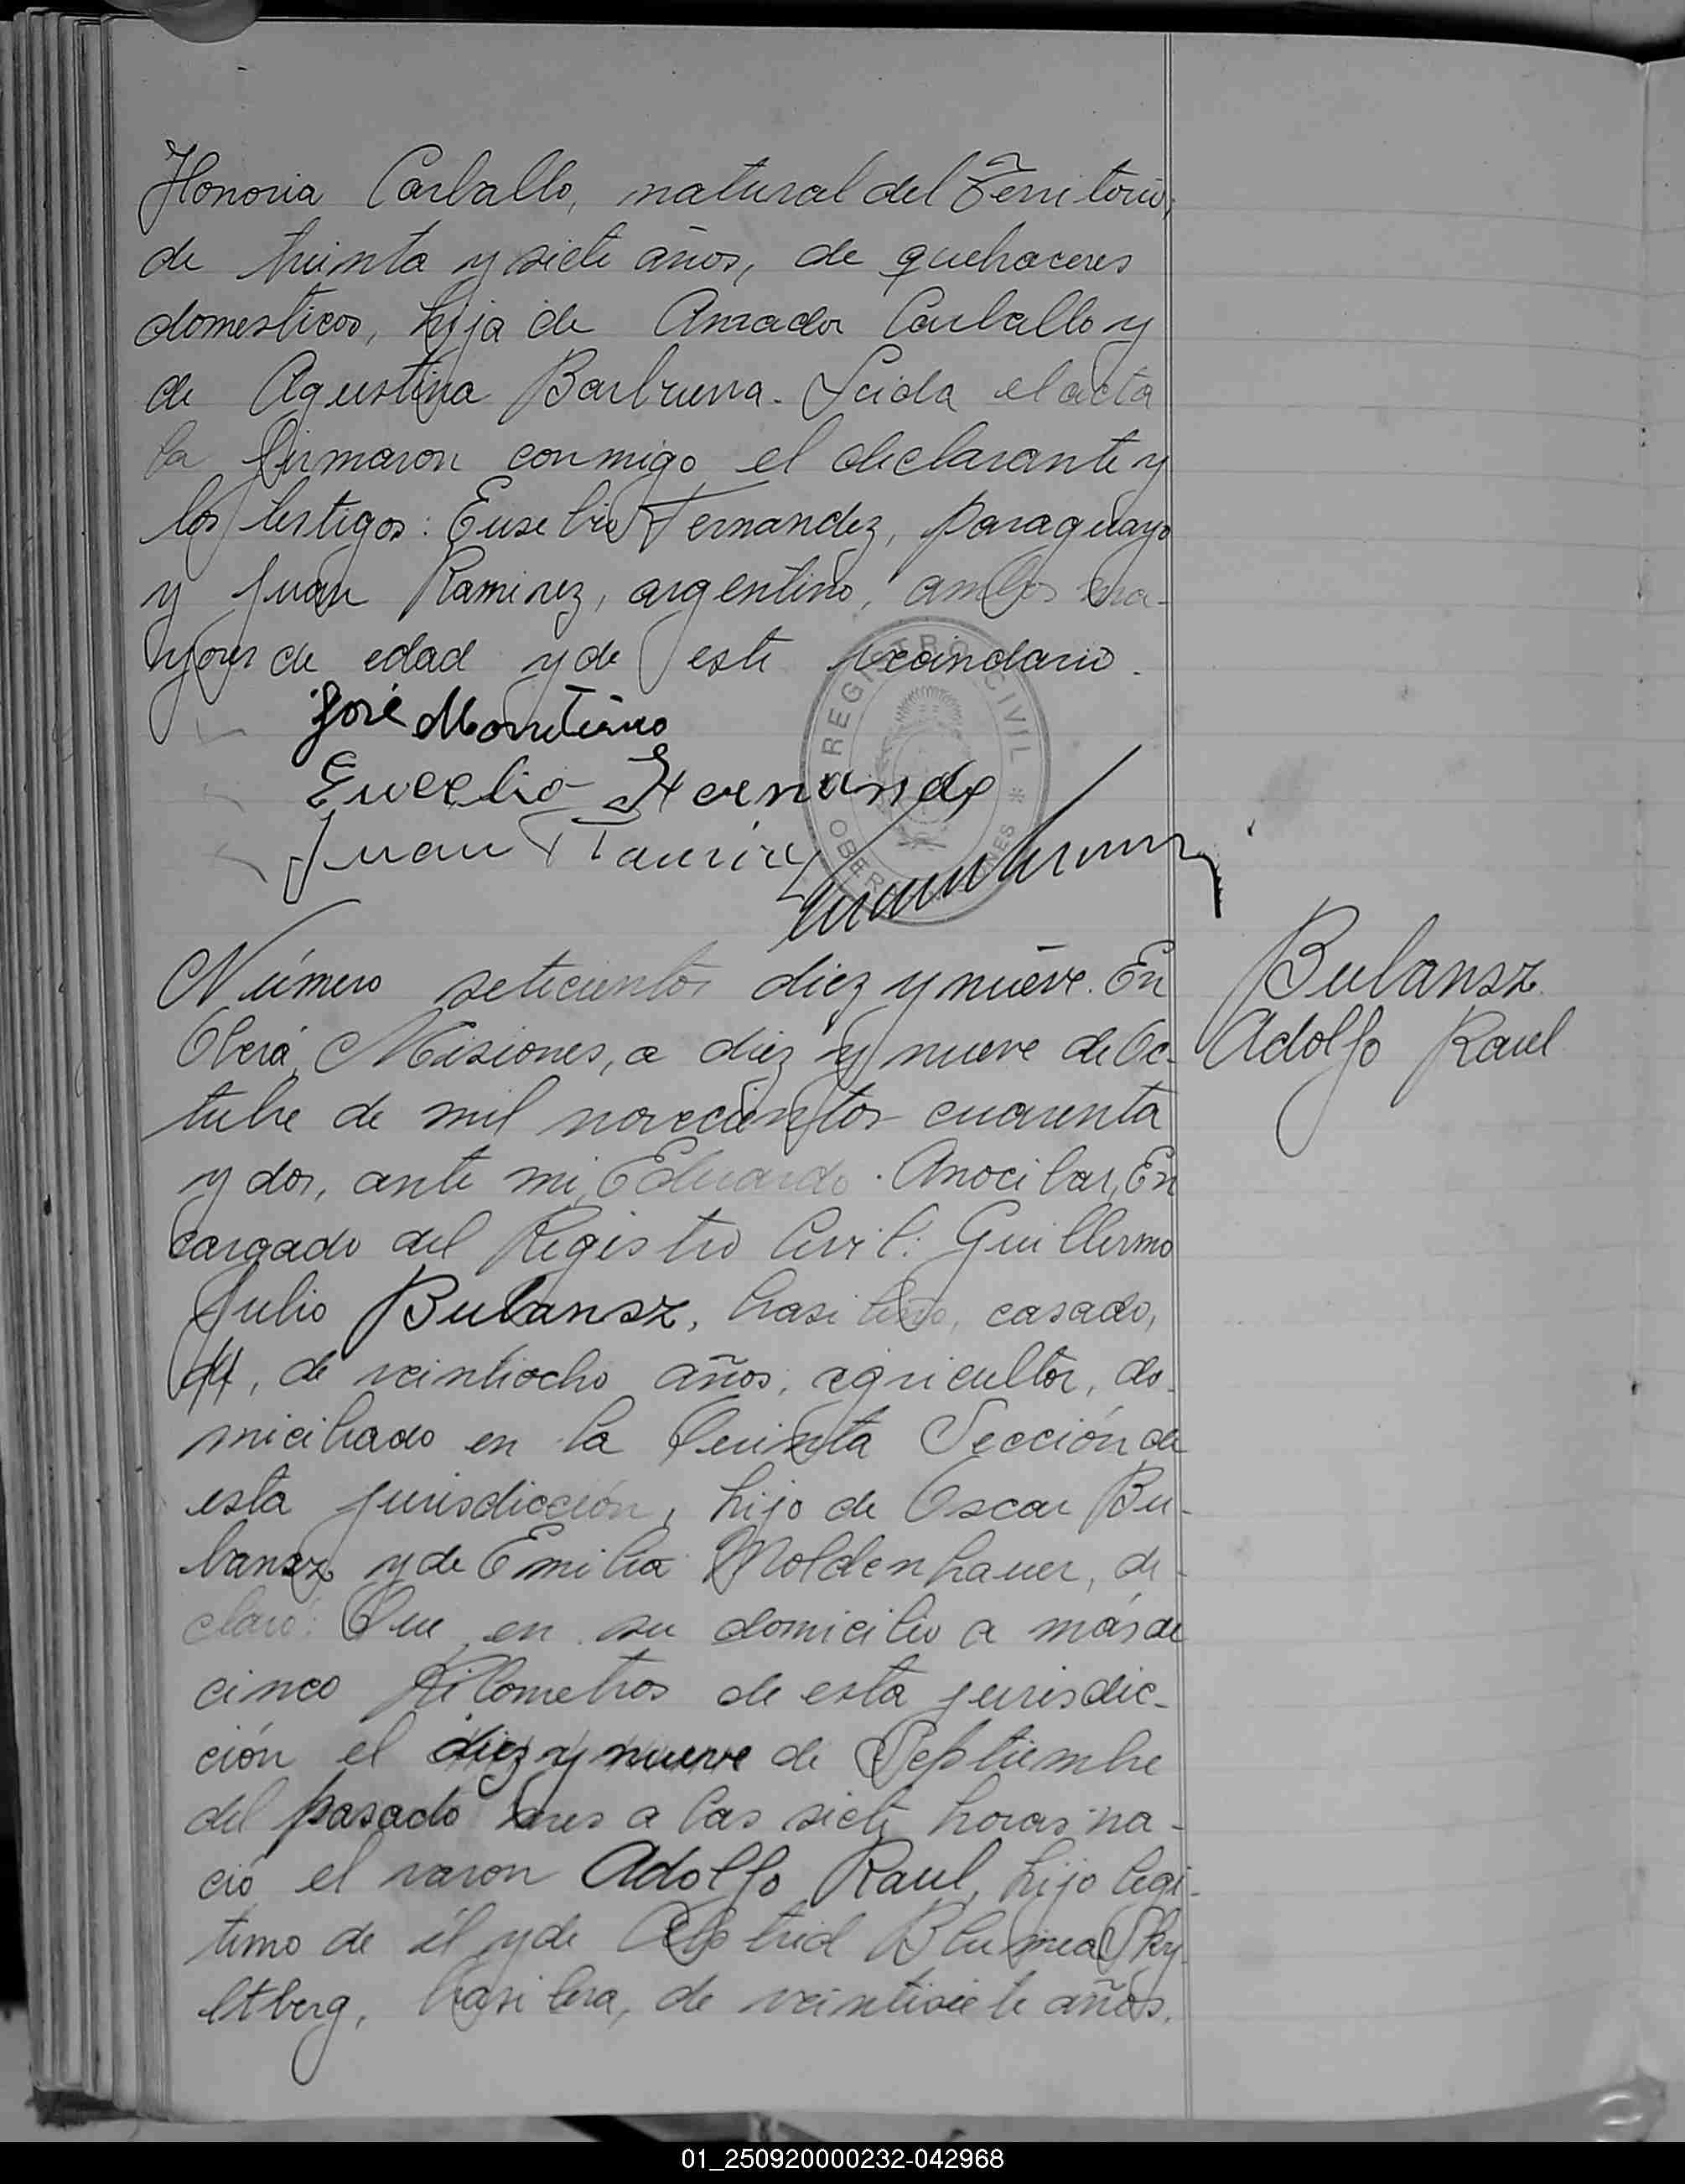 Honoria Carballo, natural del Territorio,
de treinta y siete años, de quehaceres
domesticos, hija de Amador Carballo y
de Agustina Leida el acta
la firmaron conmigo el declarante y
los testigos: Eusebio Fernandez, paraguayo
y Juan Ramirez, argentino, ambos ma-
yores de edad y de este vecindario.
REGISTRO CIVIL * OBERA MISIONES
José
Eucebio Fernande
Juan Ramirez
Número setecientos diez y nueve. En
Bulansz
Oberá, Misiones, a diez y nueve de Oc-
Adolfo Raul
tubre de mil novecientos cuarenta
y dos, ante mi, Eduardo Anocibar, En
cargado del Registro Civil: Guillermo
Julio Bulansz, brasileño, casado,
de veintiocho años, agricultor, do-
miciliado en la Quinta Sección de
esta jurisdicción, hijo de Oscar Bu-
lansz y de Emilia Moldenhauer, de-
claró: Que en su domicilio a más de
cinco kilometros de esta jurisdic-
ción el diez y nueve de Septiembre
del pasado mes a las siete horas na-
ció el varon Adolfo Raul, hijo legi-
timo de él y de Astrid Sky
ltberg, brasilera, de veintisiete años.
01_250920000232-042968